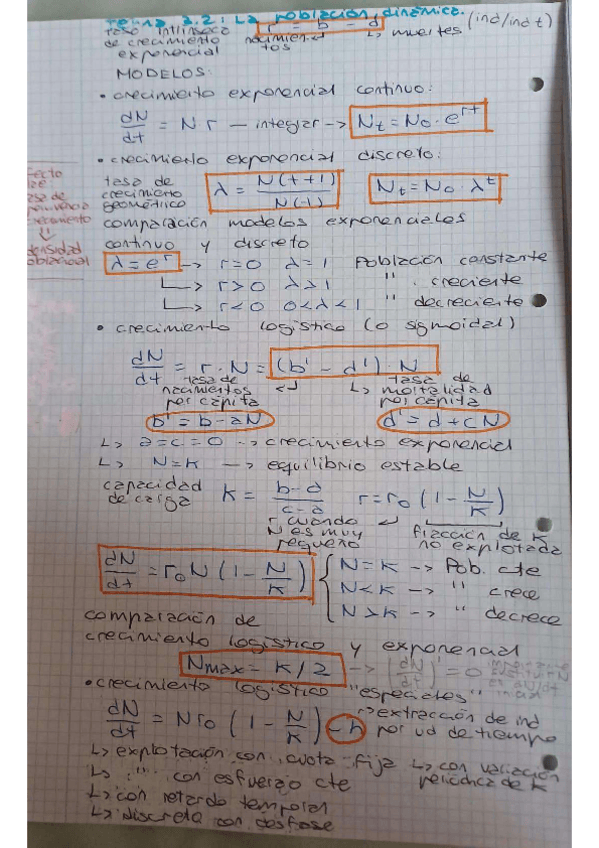 Tema 2.2: La población dinámica.
tasa intrínseca de crecimiento exponencial r = b - d (ind/ind t)
nacimientos muertes
MODELOS:
• crecimiento exponencial continuo:
dN/dt = N r — integrar -> Nt = N0 · e^rt
• crecimiento exponencial discreto:
tasa de crecimiento geométrico λ = N(t+1)/N(-1) Nt = N0 · λ^t
comparación modelos exponenciales
continuo y discreto
λ = e^r -> r=0 λ=1 Población constante
↳ r>0 λ>1 " creciente
↳ r<0 0<λ<1 " decreciente
• crecimiento logístico (o sigmoidal)
dN/dt = r · N = (b' - d') · N
tasa de nacimientos per cápita
tasa de mortalidad per cápita
b' = b - aN d' = d + cN
↳ a=c=0 -> crecimiento exponencial
↳ N=K -> equilibrio estable
capacidad de carga K = b-d/c-a r = r0 (1 - N/K)
r cuando N es muy pequeño
fracción de K no explotada
dN/dt = r0 N (1 - N/K)
N=K -> Pob. cte
N<K -> " crece
N>K -> " decrece
comparación de
crecimiento logístico y exponencial
Nmax = K/2 -> (dN/dt)' = 0
• crecimiento logístico "especiales"
dN/dt = N r0 (1 - N/K) - h
->extracción de ind por ud de tiempo
↳ explotación con cuota fija ↳ con variación periódica de K
↳ " con esfuerzo cte
↳ con retardo temporal
↳ discreta con desfase
densidad poblacional